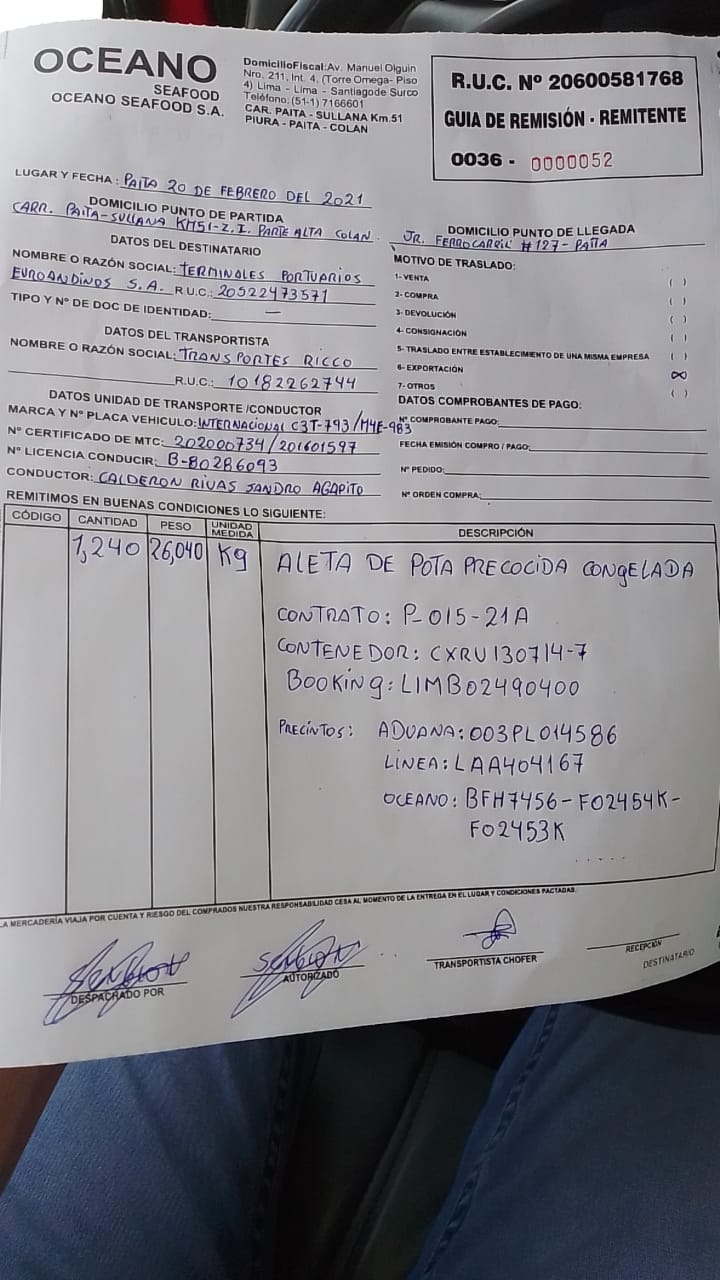 OCEANO
SEAFOOD
OCEANO SEAFOOD S.A.
DomicilioFiscal:Av. Manuel Olguin
Nro. 211, Int. 4, (Torre Omega- Piso
4) Lima - Lima - Santiagode Surco
Teléfono:(51-1) 7166601
CAR. PAITA - SULLANA Km.51
PIURA - PAITA - COLAN
R.U.C. Nº 20600581768
GUIA DE REMISIÓN - REMITENTE
0036 - 0000052
LUGAR Y FECHA : PAITA 20 DE FEBRERO DEL 2021
DOMICILIO PUNTO DE PARTIDA
CARR. PAITA-SULLANA KM51-Z.I. PARTE ALTA COLAN.
DOMICILIO PUNTO DE LLEGADA
JR. FERROCARRIL #127-PAITA
DATOS DEL DESTINATARIO
NOMBRE O RAZÓN SOCIAL: TERMINALES PORTUARIOS
EUROANDINOS S.A. R.U.C.: 20522473571
TIPO Y Nº DE DOC DE IDENTIDAD: —
DATOS DEL TRANSPORTISTA
NOMBRE O RAZÓN SOCIAL: TRANSPORTES RICCO
R.U.C.: 10182262744
DATOS UNIDAD DE TRANSPORTE /CONDUCTOR
MARCA Y Nº PLACA VEHICULO: INTERNACIONAL C3T-793/M4E-983
Nº CERTIFICADO DE MTC: 202000734/201601597
Nº LICENCIA CONDUCIR: B-80286093
CONDUCTOR: CALDERON RIVAS SANDRO AGAPITO
MOTIVO DE TRASLADO:
1- VENTA ( )
2- COMPRA ( )
3- DEVOLUCIÓN ( )
4- CONSIGNACIÓN ( )
5- TRASLADO ENTRE ESTABLECIMIENTO DE UNA MISMA EMPRESA ( )
6- EXPORTACIÓN (X)
7- OTROS ( )
DATOS COMPROBANTES DE PAGO:
Nº COMPROBANTE PAGO:
FECHA EMISIÓN COMPRO / PAGO:
Nº PEDIDO:
Nº ORDEN COMPRA:
REMITIMOS EN BUENAS CONDICIONES LO SIGUIENTE:
CÓDIGO CANTIDAD PESO UNIDAD MEDIDA DESCRIPCIÓN
1,240 26,040 Kg ALETA DE POTA PRECOCIDA CONGELADA
CONTRATO: P-015-21A
CONTENEDOR: CXRU130714-7
BOOKING: LIMB02490400
PRECINTOS: ADUANA: 003PL014586
LINEA: LAA404167
OCEANO: BFH7456-F02454K-
F02453K
LA MERCADERÍA VIAJA POR CUENTA Y RIESGO DEL COMPRADOS NUESTRA RESPONSABILIDAD CESA AL MOMENTO DE LA ENTREGA EN EL LUGAR Y CONDICIONES PACTADAS.
DESPACHADO POR
AUTORIZADO
TRANSPORTISTA CHOFER
RECEPCIÓN
DESTINATARIO